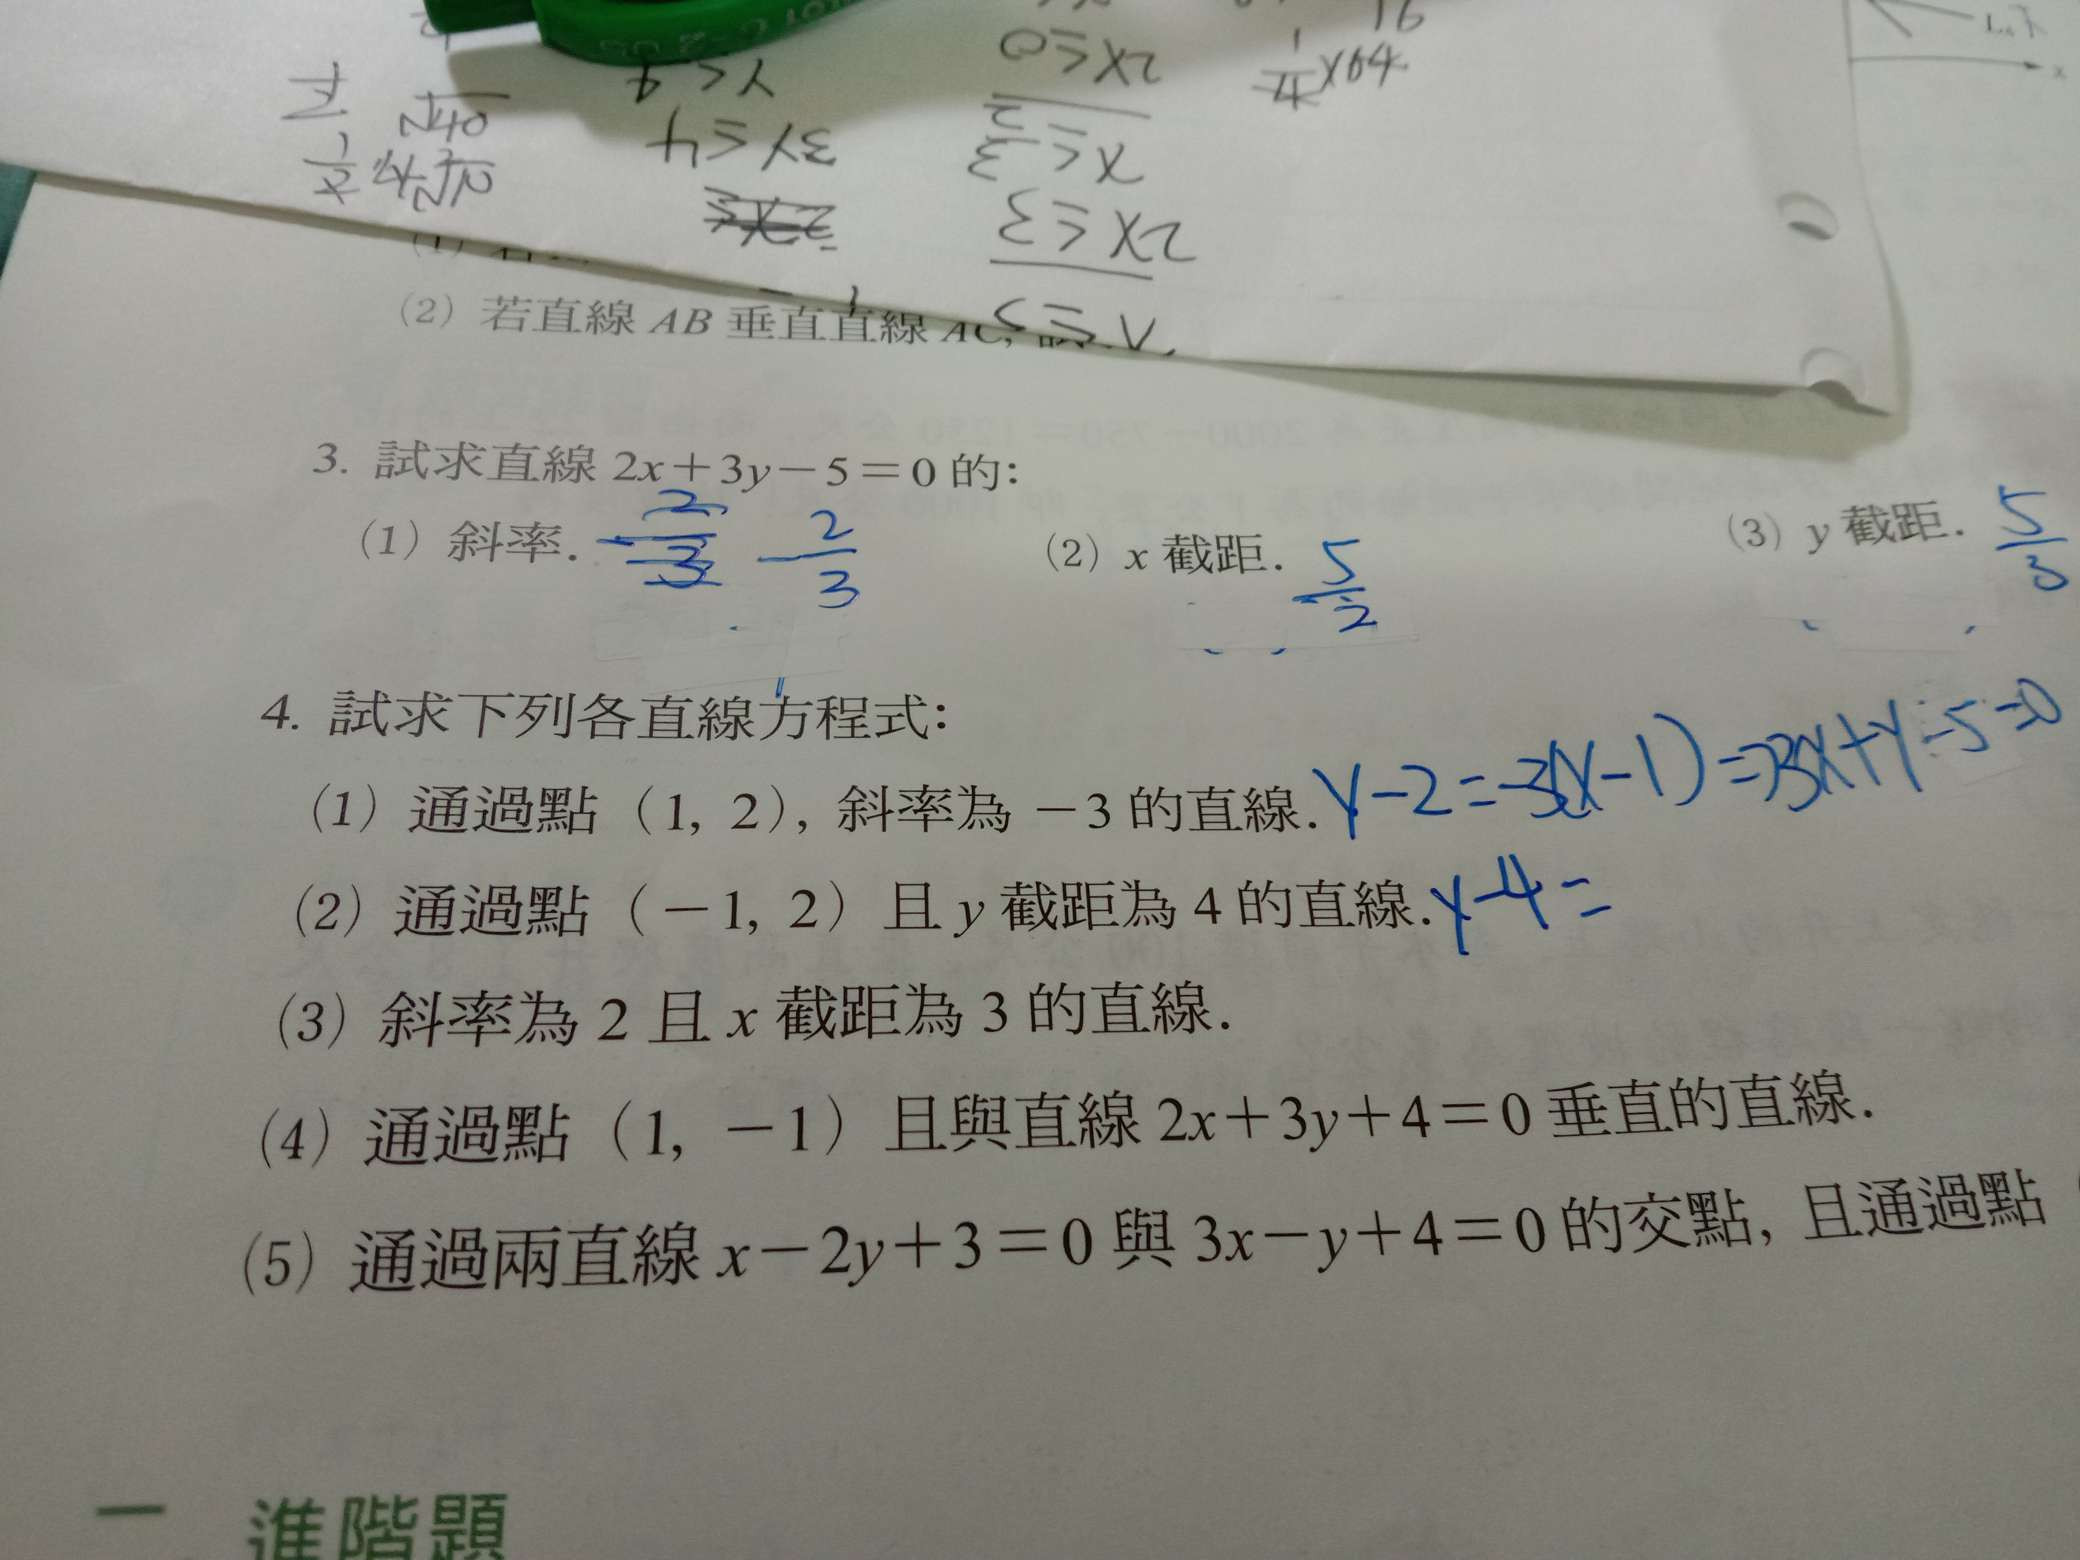 16
2X≤0
1/4 X64
Y≤4
3Y≤4
X≤3/2
2X≤3
(2) 若直線 AB 垂直直線 AC,
3. 試求直線 2x+3y-5=0 的:
(1) 斜率. -2/3 (2) x 截距. 5/2 (3) y 截距. 5/3
4. 試求下列各直線方程式:
(1) 通過點 (1, 2), 斜率為 -3 的直線. y-2=-3(x-1)=>3x+y-5=0
(2) 通過點 (-1, 2) 且 y 截距為 4 的直線. y-4=
(3) 斜率為 2 且 x 截距為 3 的直線.
(4) 通過點 (1, -1) 且與直線 2x+3y+4=0 垂直的直線.
(5) 通過兩直線 x-2y+3=0 與 3x-y+4=0 的交點, 且通過點
進階題